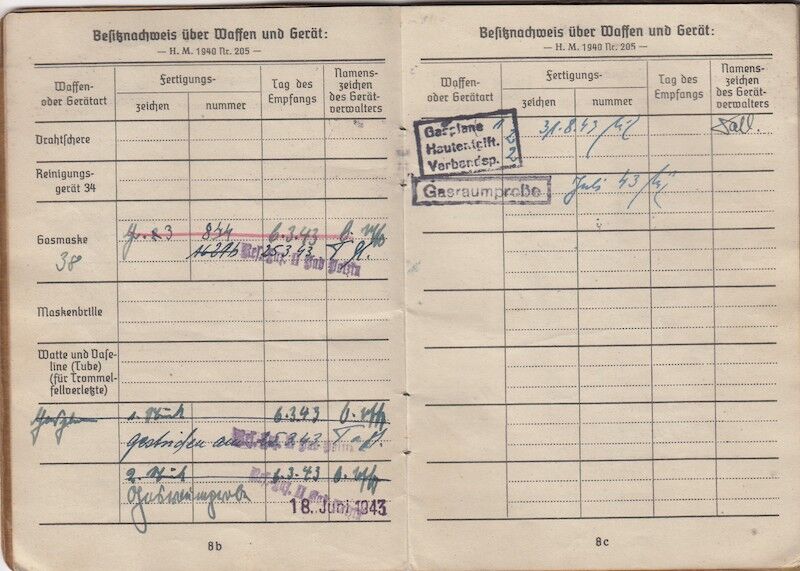 Besitznachweis über Waffen und Gerät:
— H. M. 1940 Nr. 205 —
Waffen-
oder Gerätart
Fertigungs-
zeichen
nummer
Tag des
Empfangs
Namens-
zeichen
des Gerät-
verwalters
Drahtschere
Reinigungs-
gerät 34
Gasmaske
38
844
6.3.43
25.3.43
Maskenbrille
Watte und Vase-
line (Tube)
(für Trommel-
fellverletzte)
1. Stück
6.3.43
gestrichen am
25.3.43
2. Stück
6.3.43
Gasraumprobe
18. Juni 1943
8b
Besitznachweis über Waffen und Gerät:
— H. M. 1940 Nr. 205 —
Waffen-
oder Gerätart
Fertigungs-
zeichen
nummer
Tag des
Empfangs
Namens-
zeichen
des Gerät-
verwalters
Gasplane 1
Hautentgift. 2
Verbandsp. 2
31.8.43
Gasraumprobe
Juli 43
8c